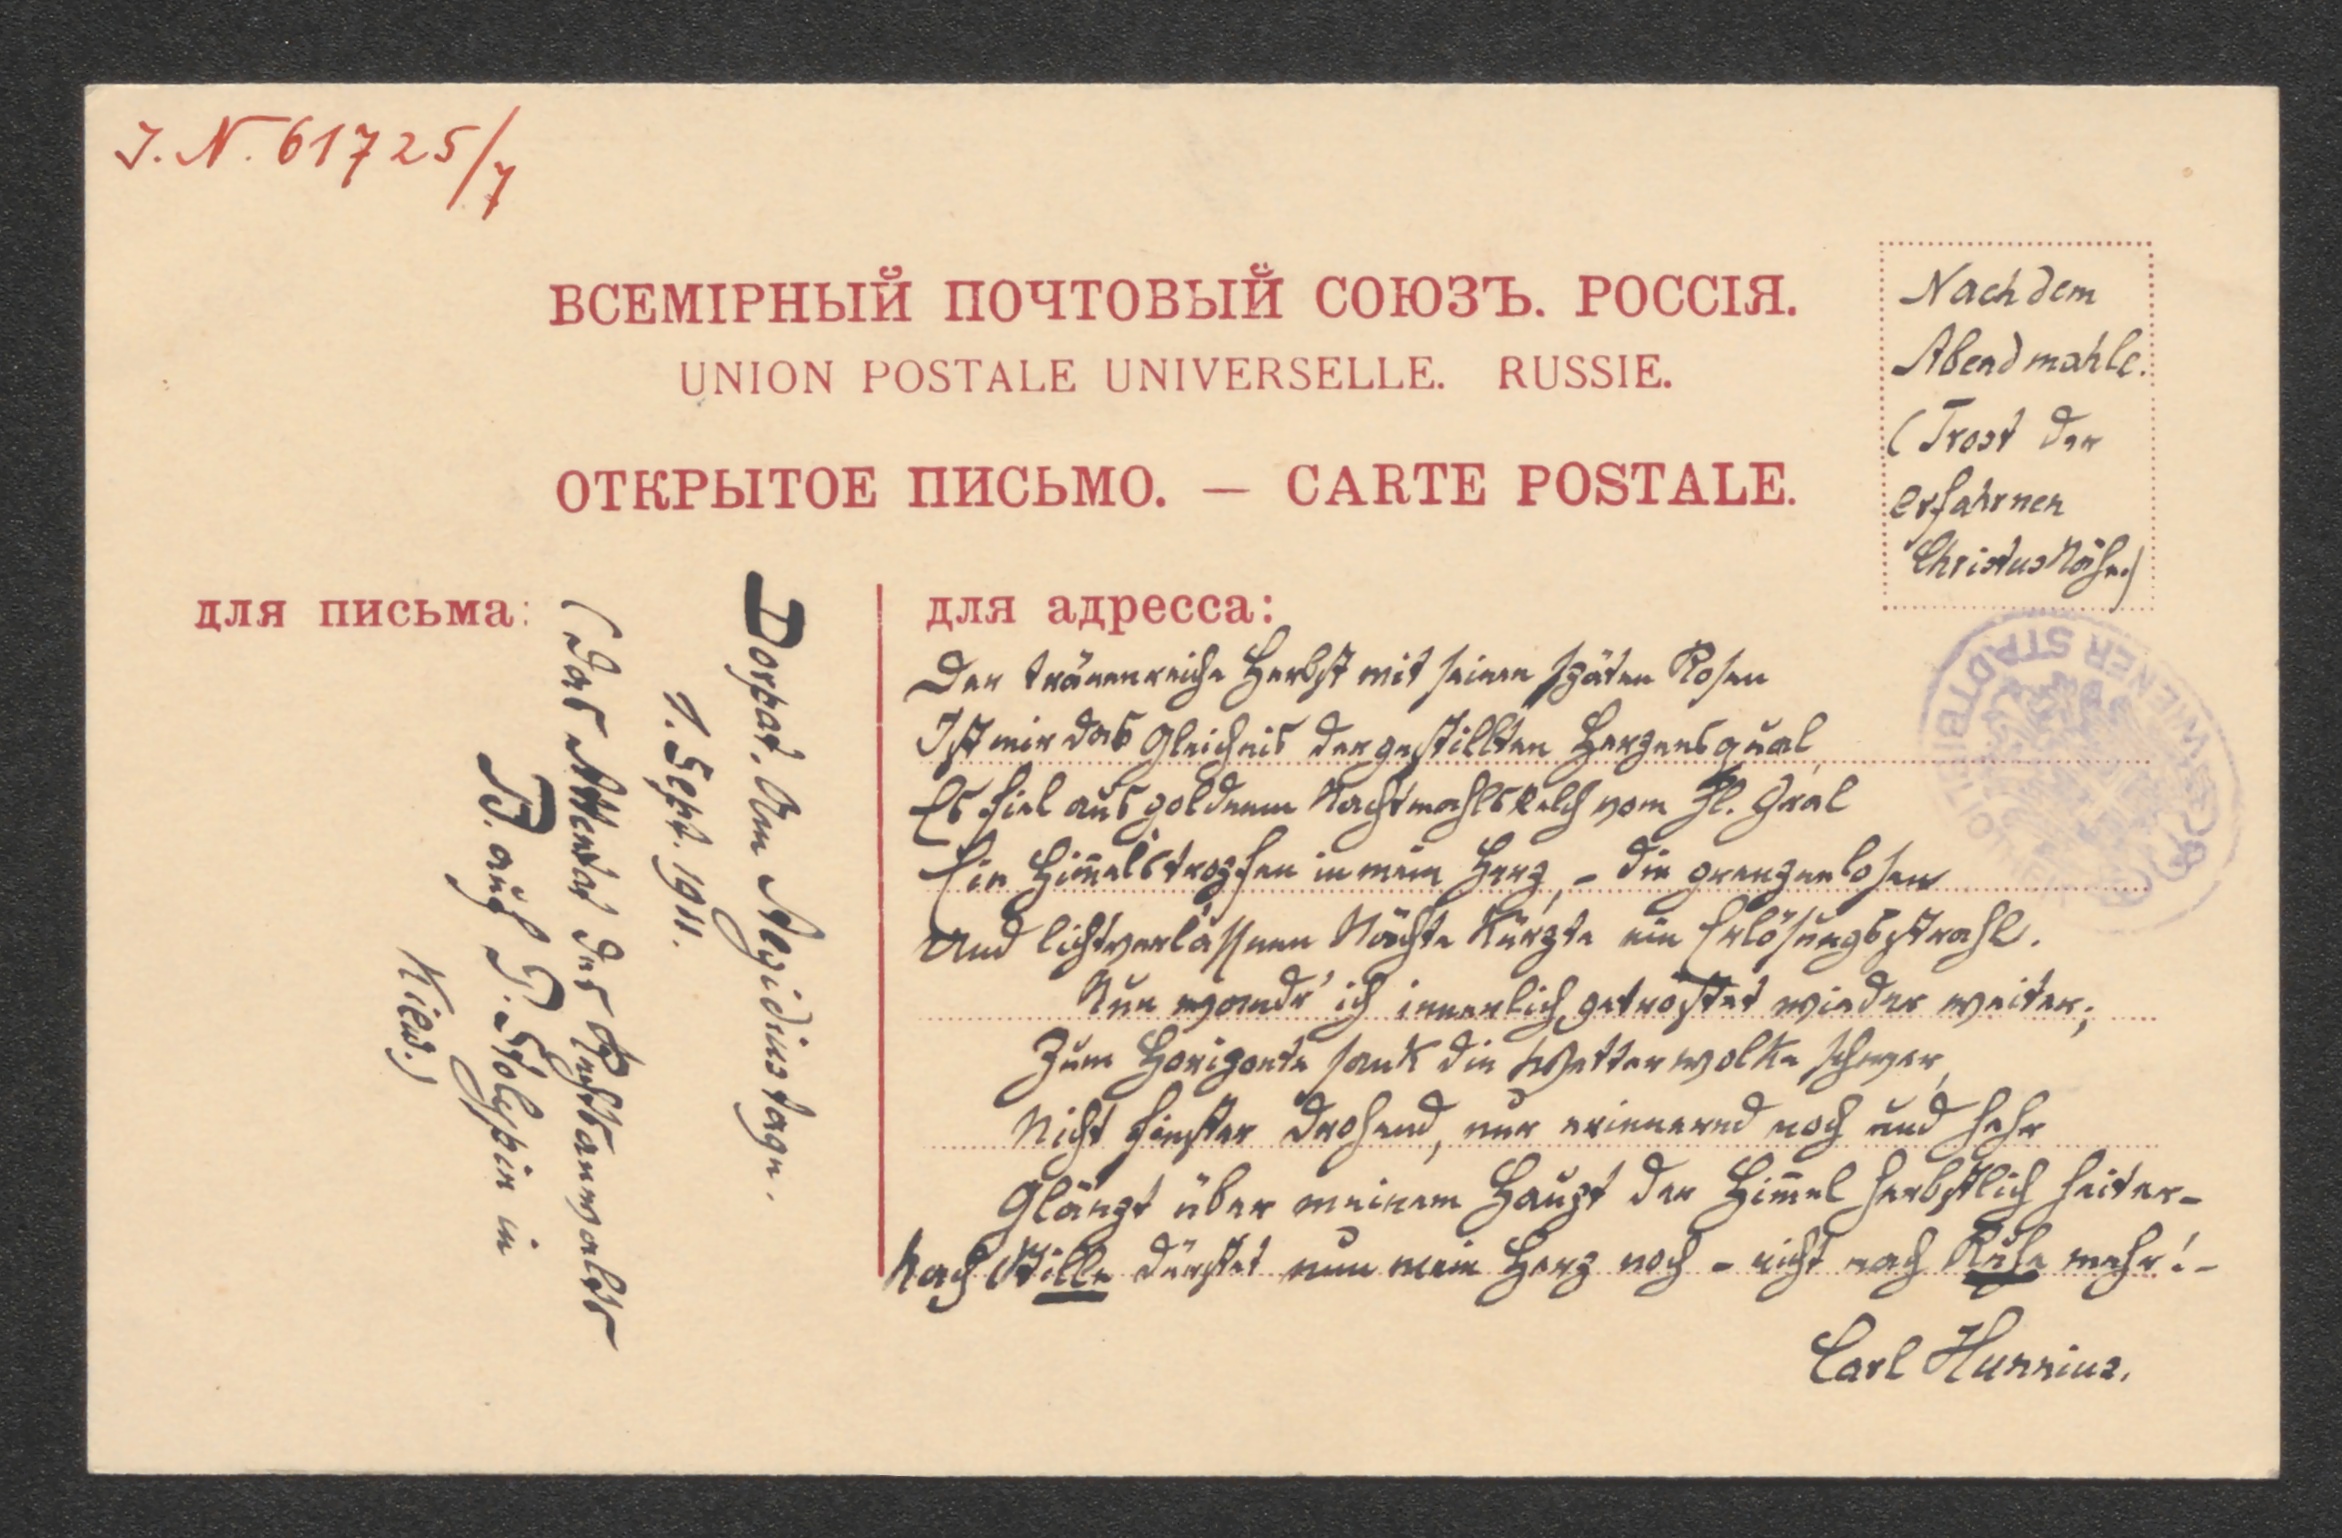 J. N. 61725/7
ВСЕМІРНЫЙ ПОЧТОВЫЙ СОЮЗЪ. РОССІЯ.
UNION POSTALE UNIVERSELLE. RUSSIE.
ОТКРЫТОЕ ПИСЬМО. — CARTE POSTALE.
Nach dem
Abendmahle.
(Trost der
erfahrnen
Christus Nähe)
для письма:
Dorpat. Am Aegidiustage.
1. Sept. 1911.
(Das Attentat des Rechtsanwalts
B. auf P. Stolypin in
Kiew.)
для адресса:
Der tränenreiche Herbst mit seinen späten Rosen
Ist mir das Gleichnis der gestillten Herzensqual,
Es fiel aus goldenem Nachtmahlskelch vom hl. Gral
Ein Him̅elstropfen in mein Herz, – die grenzenlosen
Und lichtverlassnen Nächte kürzte ein Erlösungsstrahl.
Nun wandr' ich innerlich getrostet wieder weiter;
Zum Horizonte sank die Wetterwolke schwer,
Nicht finster drohend, nur erinnernd noch und hehr
Glänzt über meinem Haupt der Him̅el herbstlich heiter –
Nach Stille dürstet nun mein Herz noch – nicht nach Ruhe mehr! –
Carl Hunnius.
WIENER STADTBIBLIOTHEK